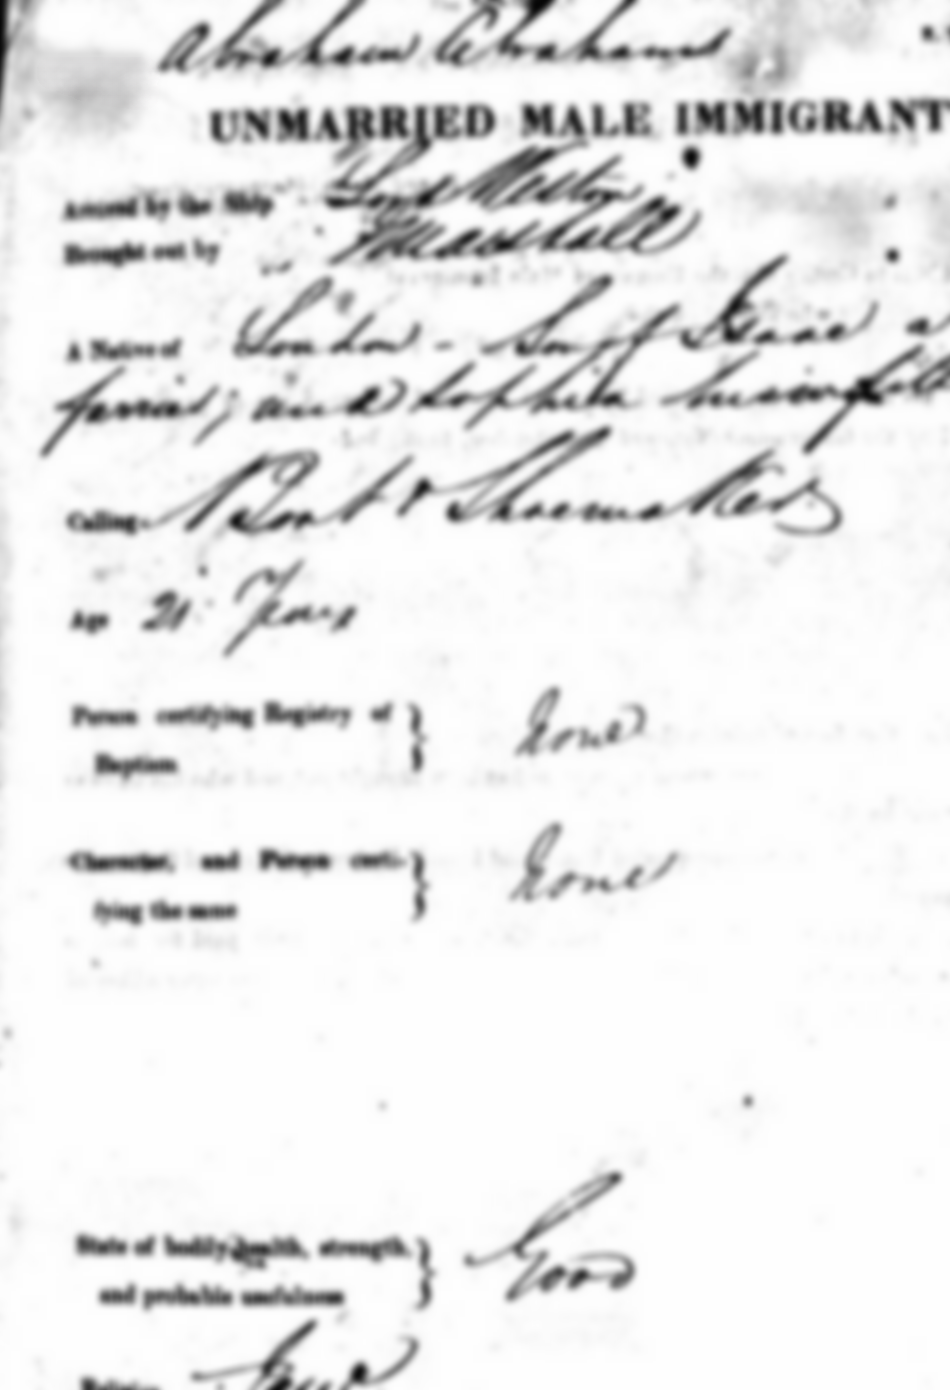 Abraham Abrahams
UNMARRIED MALE IMMIGRANT
Arrived by the Ship Lord Melton
Brought out by Marshall
A Native of London - Son of Isaac a
and Sophia his wife
Calling Boot & Shoemaker
Age 21 Years
Person certifying Registry of
Baptism
None
Character, and Person certi-
fying the same
None
State of bodily health, strength,
and probable usefulness
Good